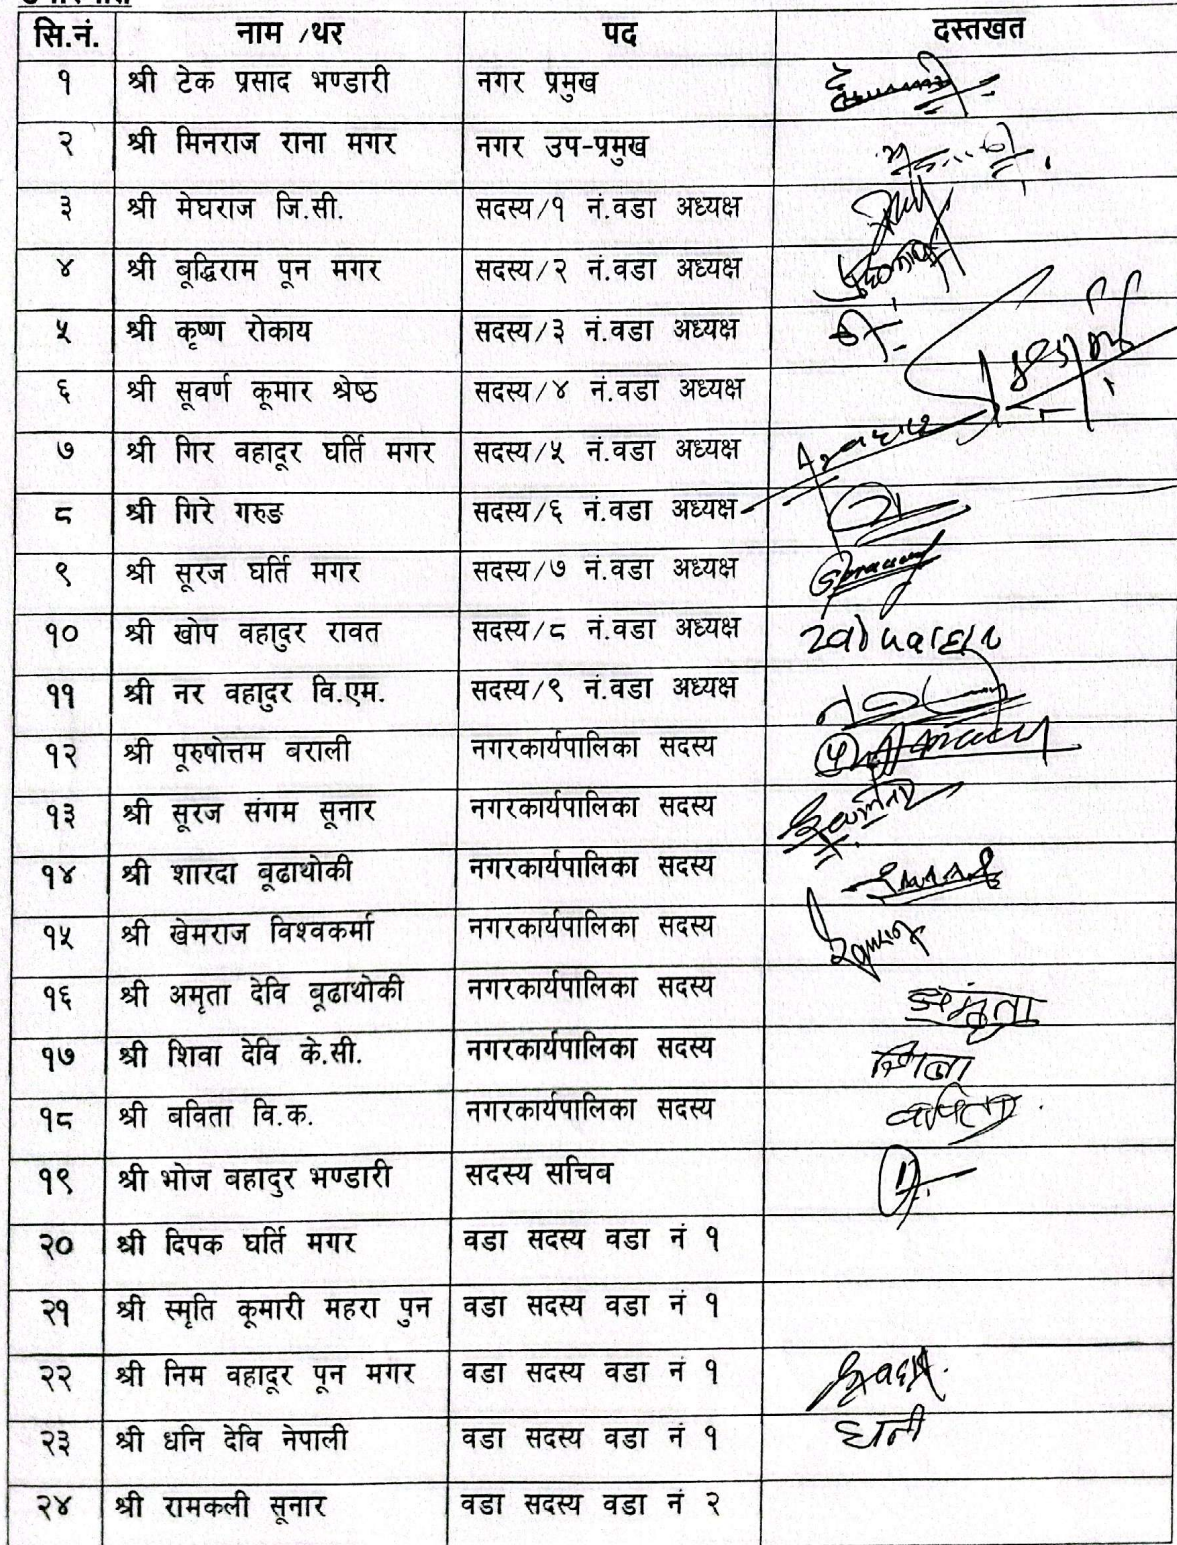 सि.नं. नाम /थर पद दस्तखत
१ श्री टेक प्रसाद भण्डारी नगर प्रमुख
२ श्री मिनराज राना मगर नगर उप-प्रमुख
३ श्री मेघराज जि.सी. सदस्य/१ नं.वडा अध्यक्ष
४ श्री बूद्धिराम पून मगर सदस्य/२ नं.वडा अध्यक्ष
५ श्री कृष्ण रोकाय सदस्य/३ नं.वडा अध्यक्ष
६ श्री सूवर्ण कूमार श्रेष्ठ सदस्य/४ नं.वडा अध्यक्ष
७ श्री गिर वहादूर घर्ति मगर सदस्य/५ नं.वडा अध्यक्ष
८ श्री गिरे गरुड सदस्य/६ नं.वडा अध्यक्ष
९ श्री सूरज घर्ति मगर सदस्य/७ नं.वडा अध्यक्ष
१० श्री खोप वहादुर रावत सदस्य/८ नं.वडा अध्यक्ष
११ श्री नर वहादुर वि.एम. सदस्य/९ नं.वडा अध्यक्ष
१२ श्री पूरुषोत्तम वराली नगरकार्यपालिका सदस्य
१३ श्री सूरज संगम सूनार नगरकार्यपालिका सदस्य
१४ श्री शारदा बूढाथोकी नगरकार्यपालिका सदस्य
१५ श्री खेमराज विश्वकर्मा नगरकार्यपालिका सदस्य
१६ श्री अमृता देवि बूढाथोकी नगरकार्यपालिका सदस्य अमृता
१७ श्री शिवा देवि के.सी. नगरकार्यपालिका सदस्य
१८ श्री बविता वि.क. नगरकार्यपालिका सदस्य
१९ श्री भोज बहादुर भण्डारी सदस्य सचिव
२० श्री दिपक घर्ति मगर वडा सदस्य वडा नं १
२१ श्री स्मृति कूमारी महरा पुन वडा सदस्य वडा नं १
२२ श्री निम वहादूर पून मगर वडा सदस्य वडा नं १
२३ श्री धनि देवि नेपाली वडा सदस्य वडा नं १ धनी
२४ श्री रामकली सूनार वडा सदस्य वडा नं २